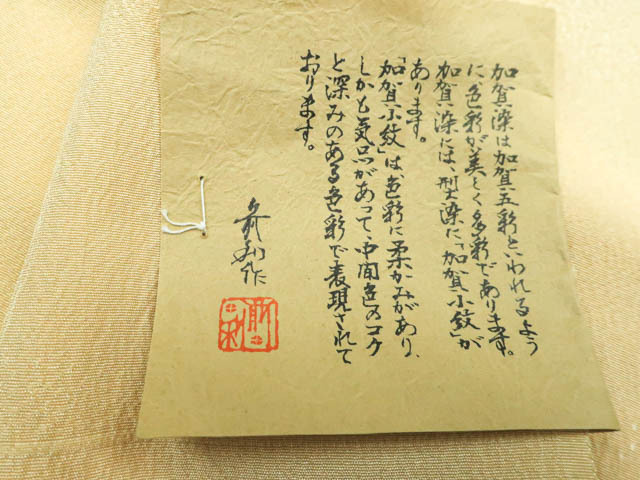 加賀染は加賀五彩といわれるよう
に、色彩が美しく多彩であります。
加賀染には、型染に「加賀小紋」が
あります。
「加賀小紋」は色彩に柔かみがあり、
しかも気品があって、中間色のコク
と深みのある色彩で表現されて
おります。
作